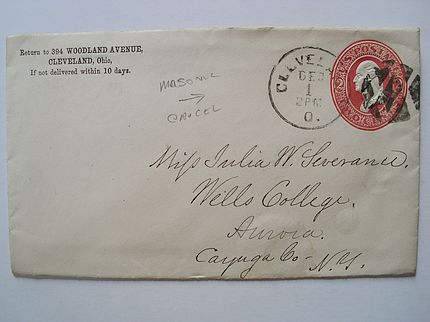 Return to 394 WOODLAND AVENUE,
CLEVELAND, Ohio,
If not delivered within 10 days.
MASONIC
CANCEL
CLEVEL
DEC
1
2PM
O.
U.S. POSTAGE
Miss Julia W. Severance,
Wells College,
Aurora.
Cayuga Co- N.Y.